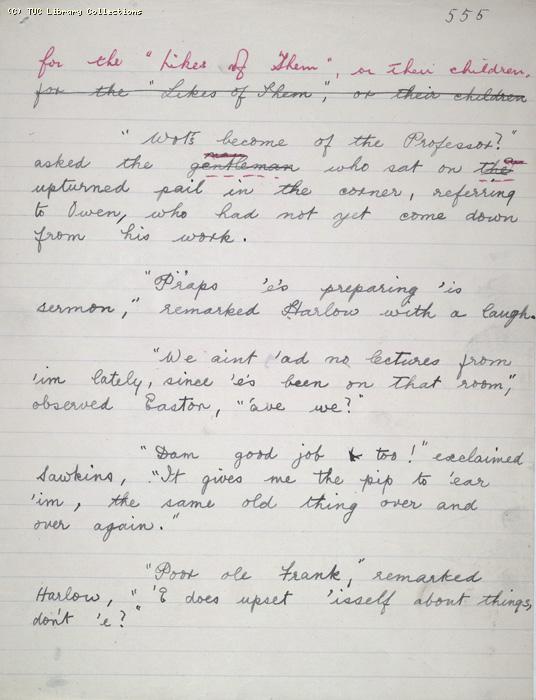 (C) TUC Library Collections
555
for the "Likes of Them", or their children.
for the "Likes of Them", or their children
"Wot's become of the Professor?"
man an
asked the gentleman who sat on the
upturned pail in the corner, referring
to Owen, who had not yet come down
from his work.
"P'raps 'e's preparing 'is
sermon," remarked Harlow with a laugh.
"We aint 'ad no lectures from
'im lately, since 'e's been on that room,"
observed Easton, "'ave we?"
"Dam good job too!" exclaimed
Sawkins, "It gives me the pip to 'ear
'im, the same old thing over and
over again."
"Poor ole Frank," remarked
Harlow, "'E does upset 'isself about things,
don't 'e?"